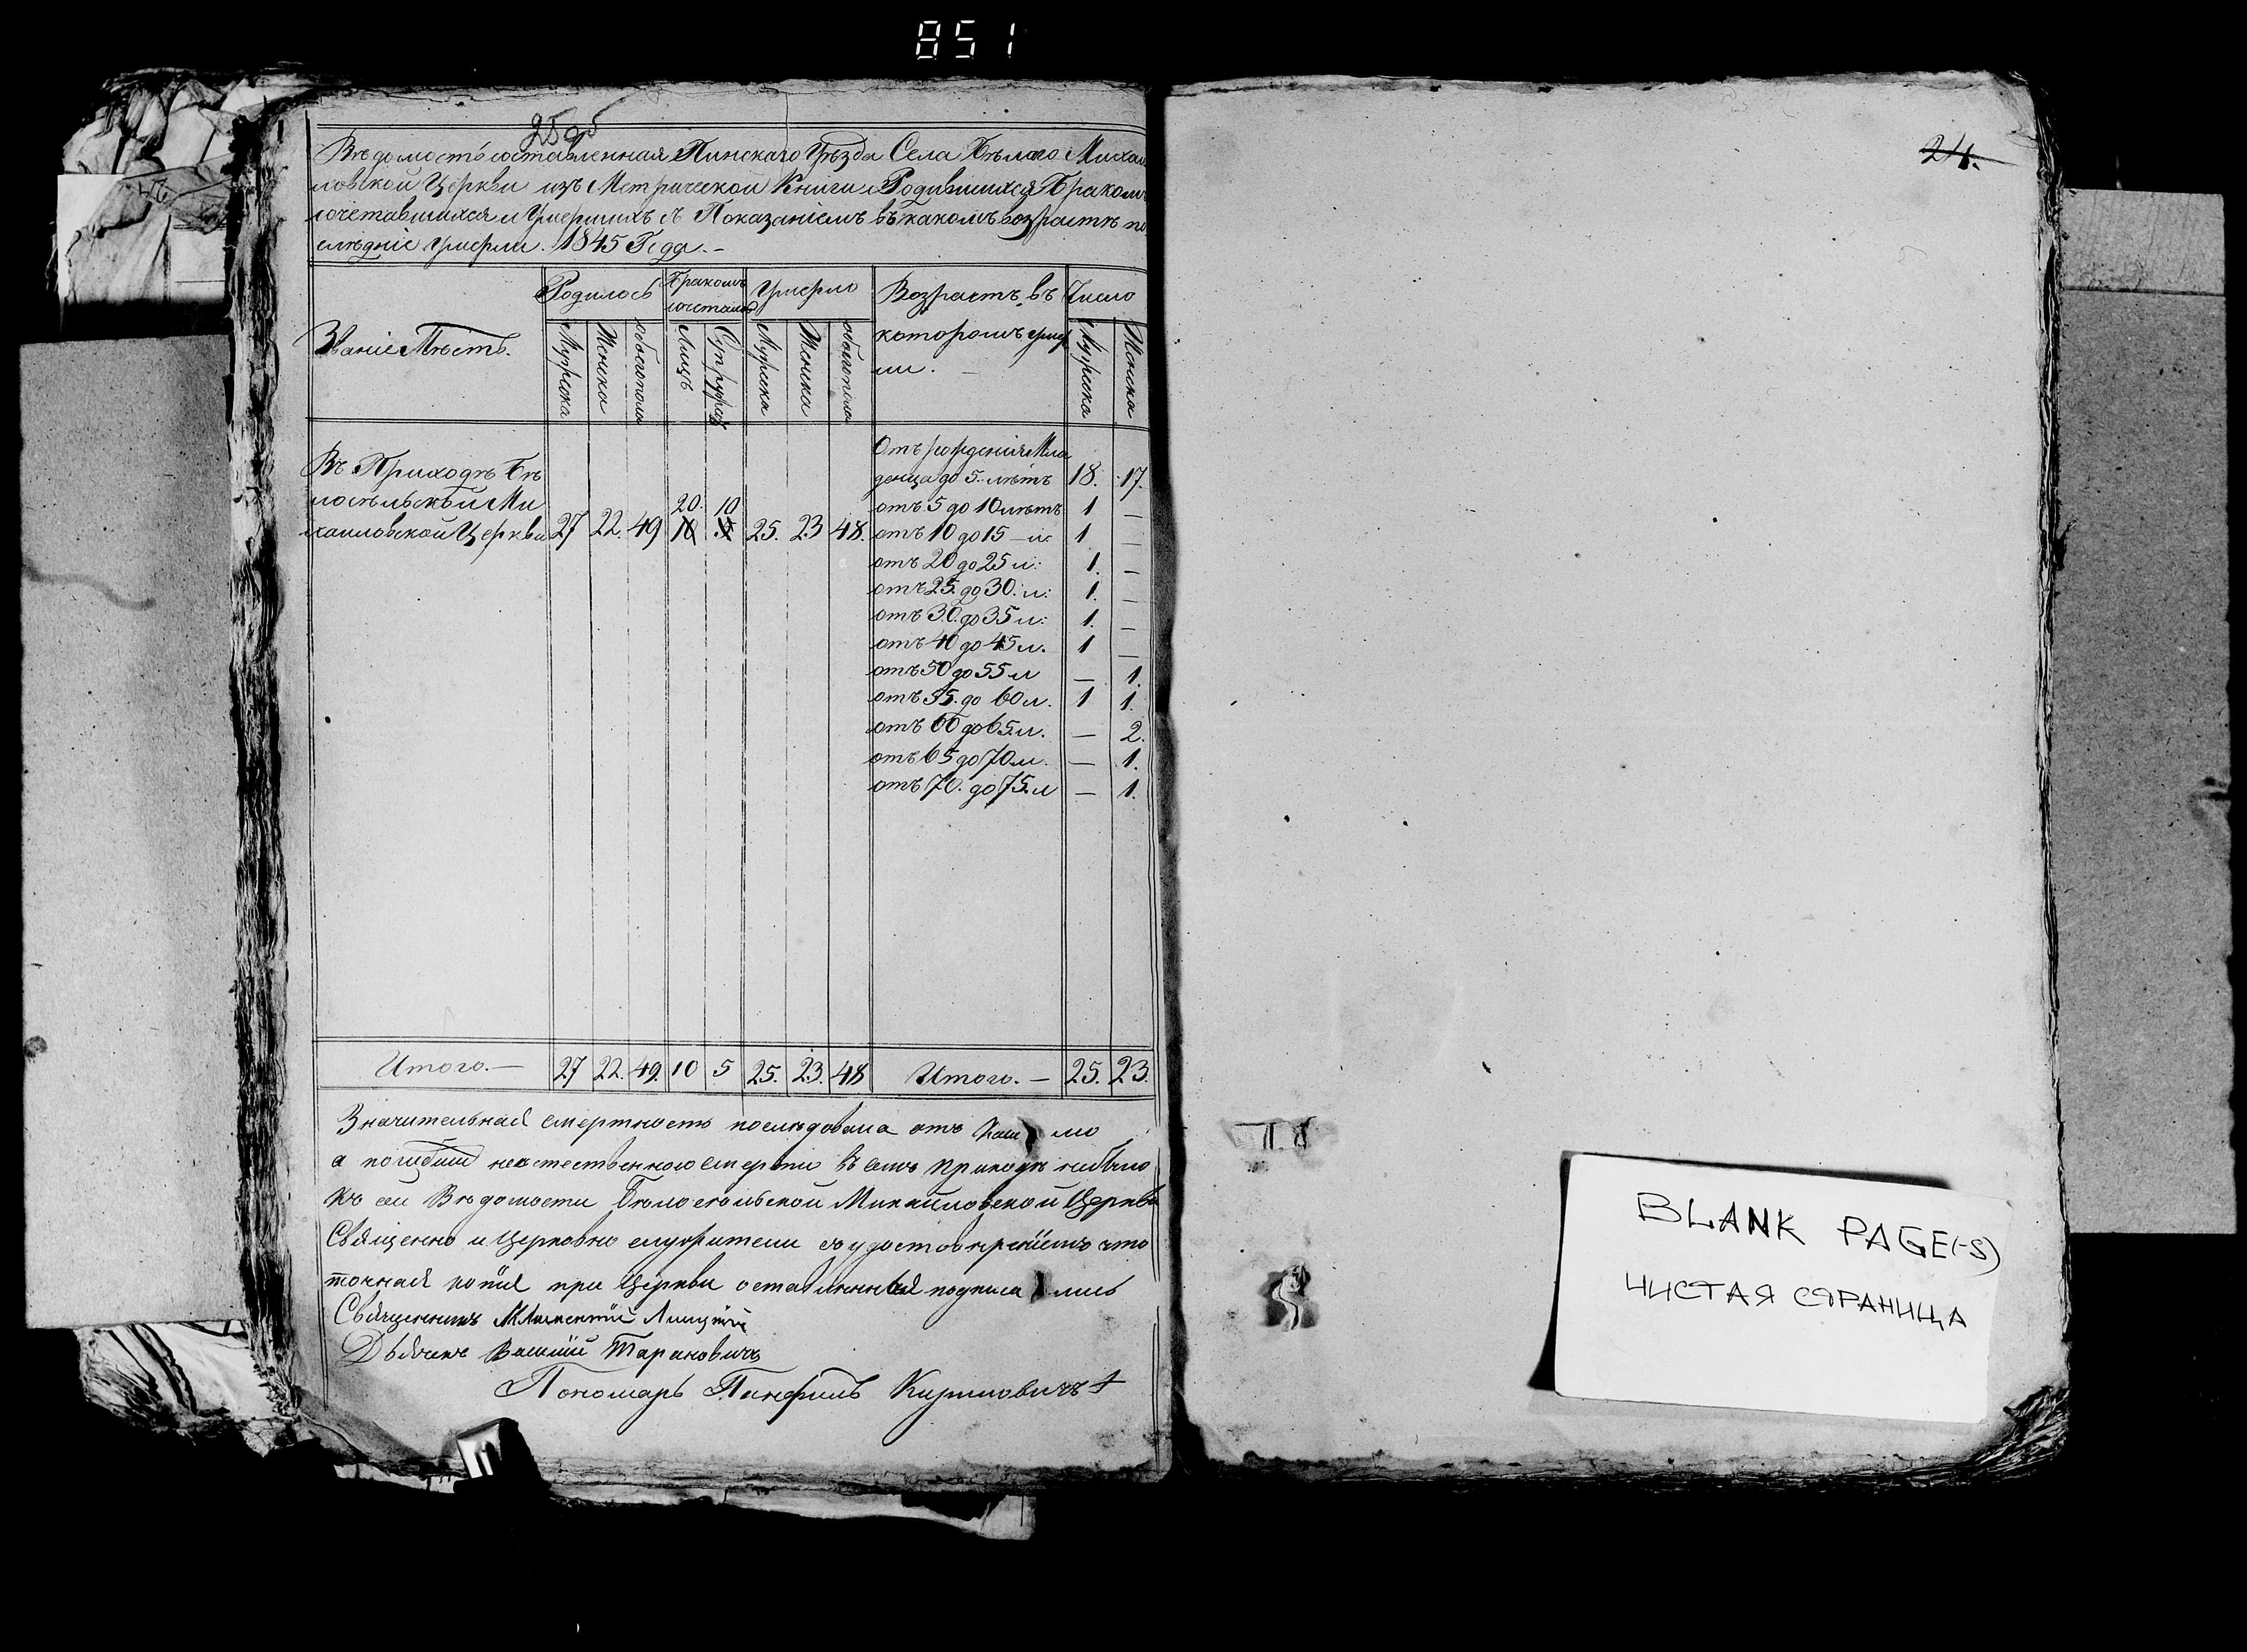 851
Вѣдомость составленная Пинскаго Уѣзда Села Бѣлаго Михаи
ловской Церкви изъ Метрической Книги о Родившихся Бракомъ
сочетавшихся и Умершихъ съ Показаніемъ въ какомъ возрастѣ по
слѣдніе умерли. 1845 Года.-
Званіе Мѣстъ.
Родилось
Бракомъ
сочеталось
Умерло
Возрастъ, въ
которомъ умер
ли. -
Число
Мужеска
Женска
обоего пола
Лицъ
Супружествъ
Мужеска
Женска
обоего пола
Мужеска
Женска
Въ Приходѣ Бѣ
лосельской Ми
хаиловской Церкви 27 22. 49 20. 10 10 5 25. 23 48.
Отъ рожденія Мла
денца до 5. лѣтъ 18. 17.
отъ 5 до 10 лѣтъ 1 —
отъ 10 до 15 — л: 1 —
отъ 20 до 25 л: 1. —
отъ 25. до 30. л: 1. —
отъ 30. до 35 л: 1. —
отъ 40 до 45 л. 1 —
отъ 50 до 55 л — 1.
отъ 55. до 60 л. 1 1.
отъ 60 до 65. л. — 2.
отъ 65 до 70 л. — 1.
отъ 70. до 75. л — 1.
Итого. — 27 22. 49. 10 5 25. 23. 48 Итого. — 25. 23.
Значительная смертность последовала отъ
а неестественного смерти в семъ приходѣ небыло
Къ сей Вѣдомости Белосельской Михайловской Церкви
Священно и Церковно служители съ удостоверениемъ что
точная копия при Церкви оставленная подписа лись
Священникъ
Дьячекъ Василий Таранович
Пономарь Панфилъ Кириловичъ +
24.
BLANK PAGE(-S)
ЧИСТАЯ СТРАНИЦА